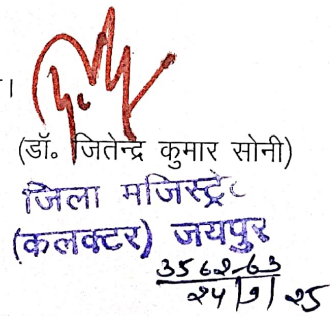 ।
(डॉ० जितेन्द्र कुमार सोनी)
जिला मजिस्ट्रेट
(कलक्टर) जयपुर
3562-63